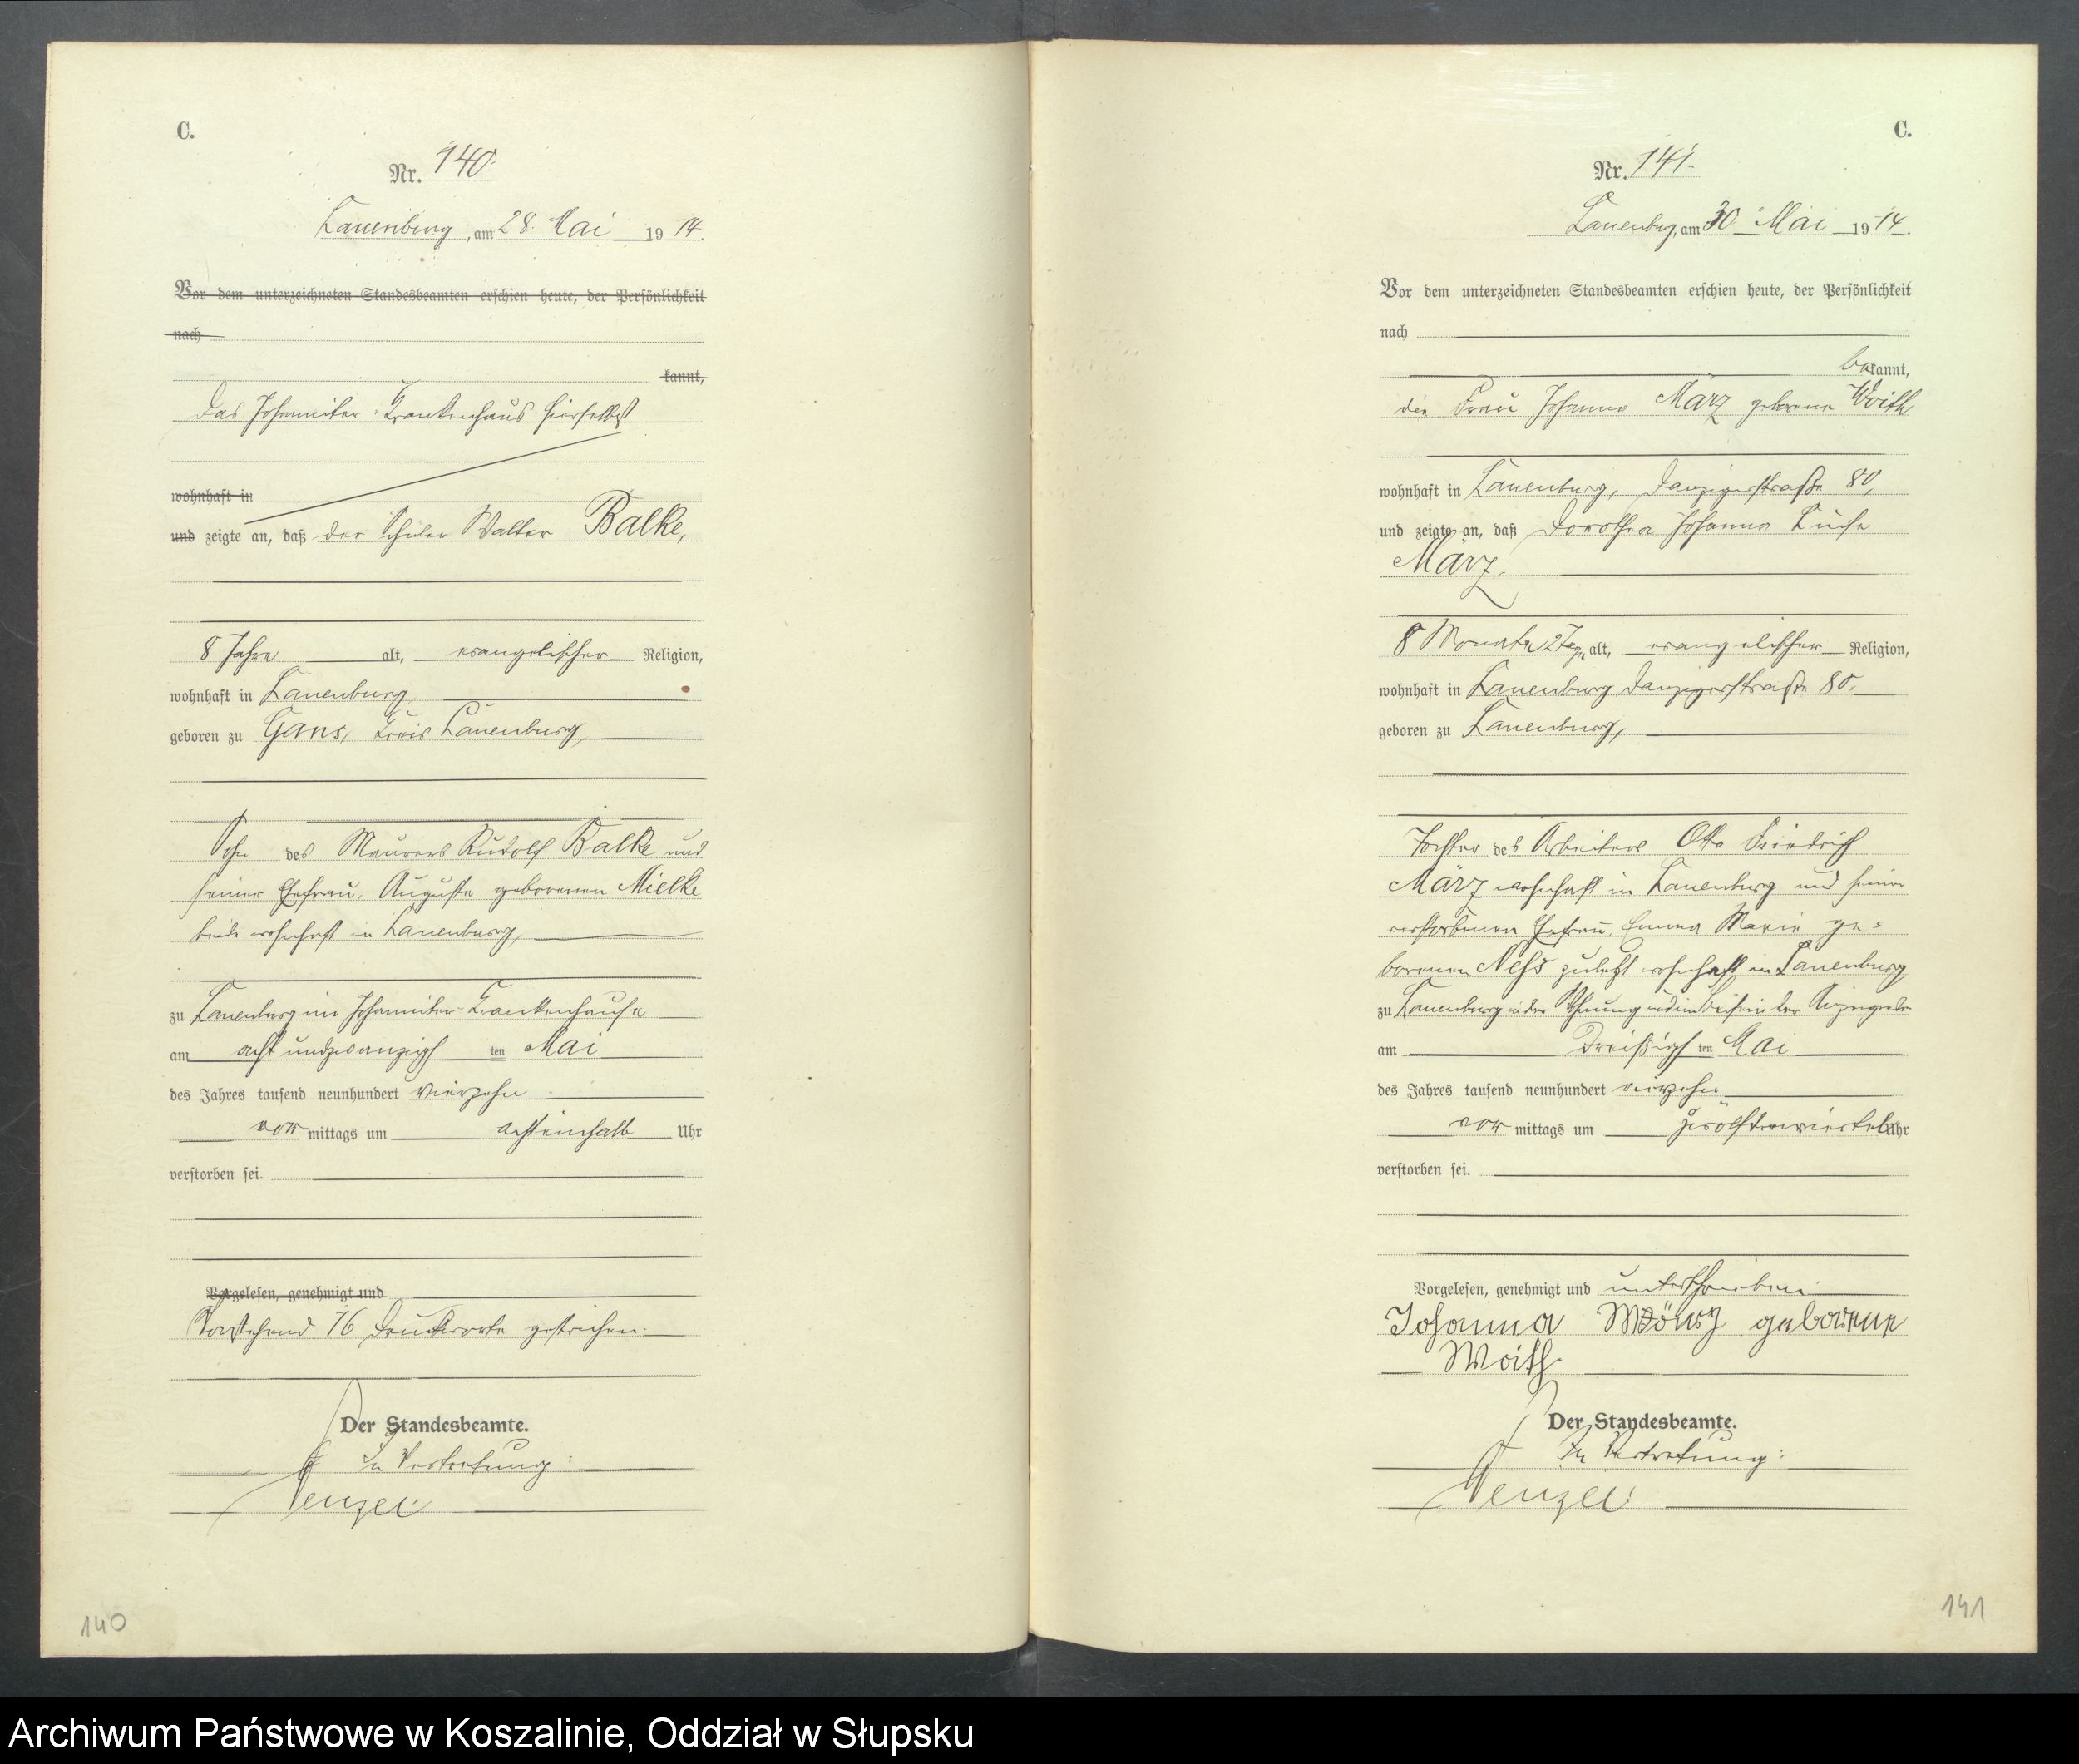 C.
Nr. 140.
Lauenburg, am 28. Mai 1914.
Vor dem unterzeichneten Standesbeamten erschien heute, der Persönlichkeit
nach
kannt,
das Johanniter-Krankenhaus hierselbst
wohnhaft in
und zeigte an, daß der Schüler Walter Balke,
8 Jahre alt, evangelischer Religion,
wohnhaft in Lauenburg,
geboren zu Gans, Kreis Lauenburg,
Sohn des Maurers Rudolf Balke und
seiner Ehefrau, Auguste geborenen Mielke
beide wohnhaft in Lauenburg,
zu Lauenburg im Johanniter-Krankenhause
am acht undzwanzigsten Mai
des Jahres tausend neunhundert vierzehn
vormittags um achteinhalb Uhr
verstorben sei.
Vorgelesen, genehmigt und
Vorstehend 16 Druckworte gestrichen.
Der Standesbeamte.
In Vertretung:
Wenzel.
140
C.
Nr. 141.
Lauenburg, am 30. Mai 1914.
Vor dem unterzeichneten Standesbeamten erschien heute, der Persönlichkeit
nach
bekannt,
die Frau Johanna März geborene Woith
wohnhaft in Lauenburg, Danzigerstraße 80,
und zeigte an, daß Dorothea Johanna Luise
März,
8 Monate 2 Tage alt, evangelischer Religion,
wohnhaft in Lauenburg Danzigerstraße 80,
geboren zu Lauenburg,
Tochter des Arbeiters Otto Friedrich
März wohnhaft in Lauenburg und seiner
verstorbenen Ehefrau, Emma Marie ge-
borenen Neß zuletzt wohnhaft in Lauenburg
zu Lauenburg in der Wohnung und im Beisein der Anzeigenden
am dreißigsten Mai
des Jahres tausend neunhundert vierzehn
vormittags um zwölfdreiviertel Uhr
verstorben sei.
Vorgelesen, genehmigt und unterschrieben.
Johanna März geborene
Woith.
Der Standesbeamte.
In Vertretung:
Wenzel.
141
Archiwum Państwowe w Koszalinie, Oddział w Słupsku